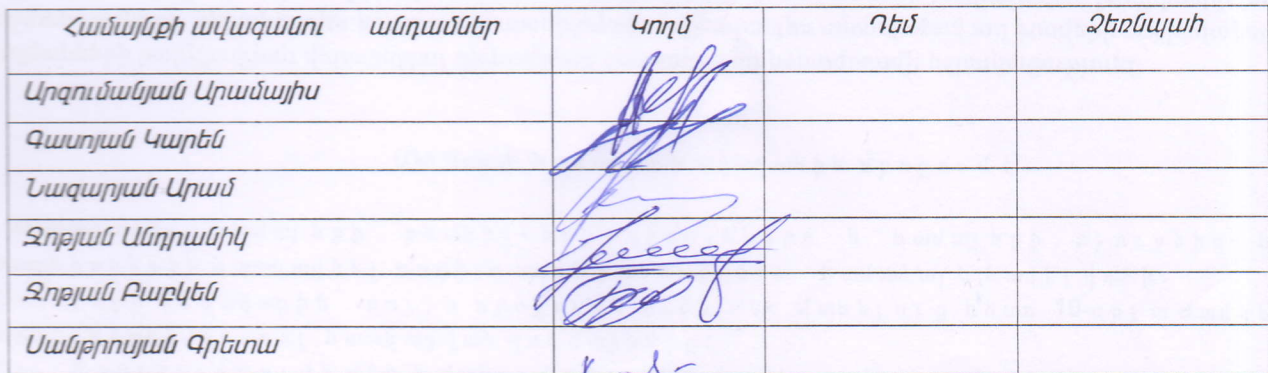 Համայնքի ավագանու անդամներ Կողմ Դեմ Ձեռնպահ
Արզումանյան Արամայիս
Գասոյան Կարեն
Նազարյան Արամ
Չոթյան Անդրանիկ
Չոթյան Բաբկեն
Սանթրոսյան Գրետա